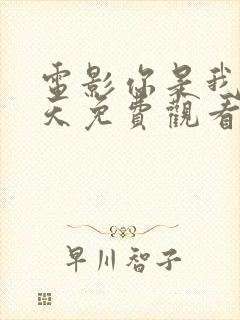 電影你是我
天免費觀看
早川智子